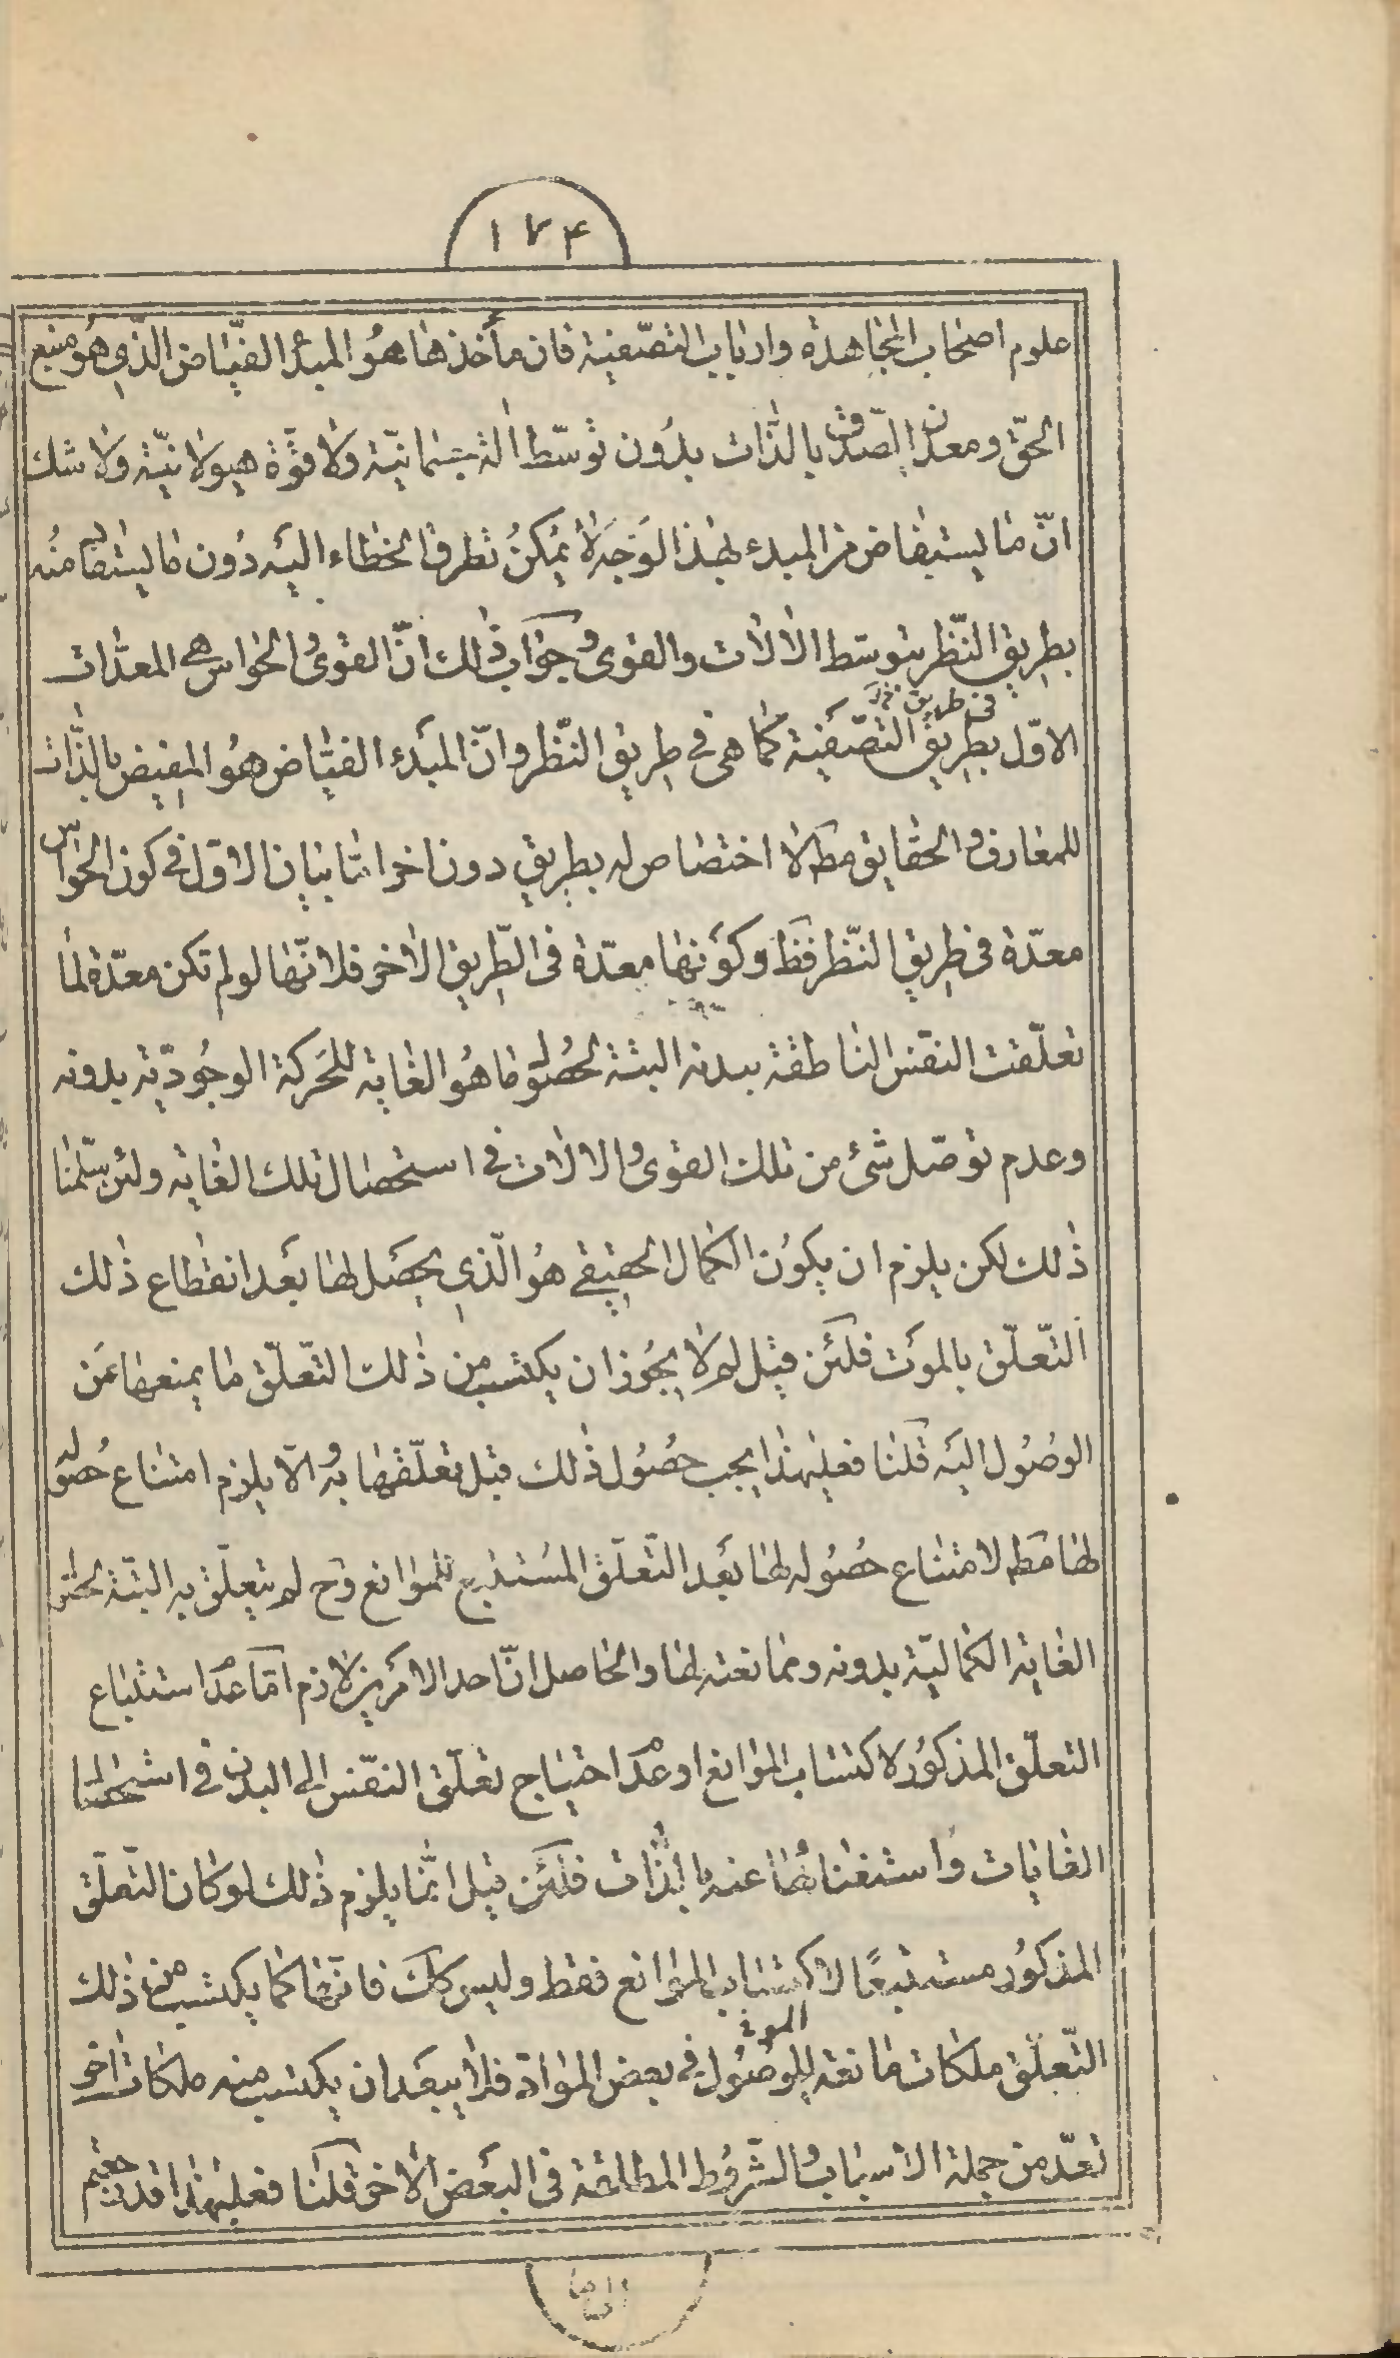 ١٧۴
علوم اصحاب المجاهدة وارباب التصفية فان مأخذها هو المبدء الفيّاض الّذي هو منبع
الحقّ ومعدن الصّدق بالذّات بدون توسّط الة جسمانيّة ولا قوّة هيولانيّة ولا شك
انّ ما يستفاض من المبدء بهذا الوجه لا يمكن تطرق الخطاء اليه دون ما يستفاض منه
بطريق النّظر بتوسّط الالات والقوى وجواب ذلك انّ القوى والحواس هي المعدّات
في طريق
الاوّل بطريق التصفية كما هي في طريق النّظر وانّ المبدء الفيّاض هو المفيض بالذّات
للمعارف والحقايق مط لا اختصاص له بطريق دون اخر اما بيان الاوّل في كون الحواس
معدّة في طريق النّظر فقط وكونها معدّة في الطّريق الاخر فلانّها لو لم تكن معدّة لما
تعلّقت النفس الناطقة ببدنه البتة لحصول ما هو الغاية للحركة الوجوديّة بدونه
وعدم توصّل شئ من تلك القوى والالات في استحصال تلك الغاية ولئن سلّمنا
ذلك لكن يلزم ان يكون الكمال الحقيقي هو الّذي يحصل لها بعد انقطاع ذلك
التّعلّق بالموت فلئن قيل لم لا يجوز ان يكتسب من ذلك التّعلّق ما يمنعها عن
الوصول اليه قلنا فعلى هذا يجب حصول ذلك قبل تعلّقها به والّا يلزم امتناع حصوله
لها مط لامتناع حصوله لها بعد التّعلّق المستتبع للموانع وح لم يتعلّق به البتة لحصول
الغاية الكماليّة بدونه وممانعته لها والحاصل انّ احد الامرين لازم امّا عدم استتباع
التعلّق المذكور لاكتساب الموانع او عدم احتياج تعلّق النفس الى البدن في استحصال
الغايات واستغنائها عنه بالذّات فلئن قيل انّما يلزم ذلك لو كان التعلّق
المذكور مستتبعًا لاكتساب الموانع فقط وليس كك فانّها كما يكتسب من ذلك
التّعلّق ملكات مانعة للوصول في بعض الموادّ فلا يبعد ان يكتسب منه ملكات اخر
تعدّ من جملة الاسباب والشّروط في البعض الاخر قلنا فعلى هذا قد